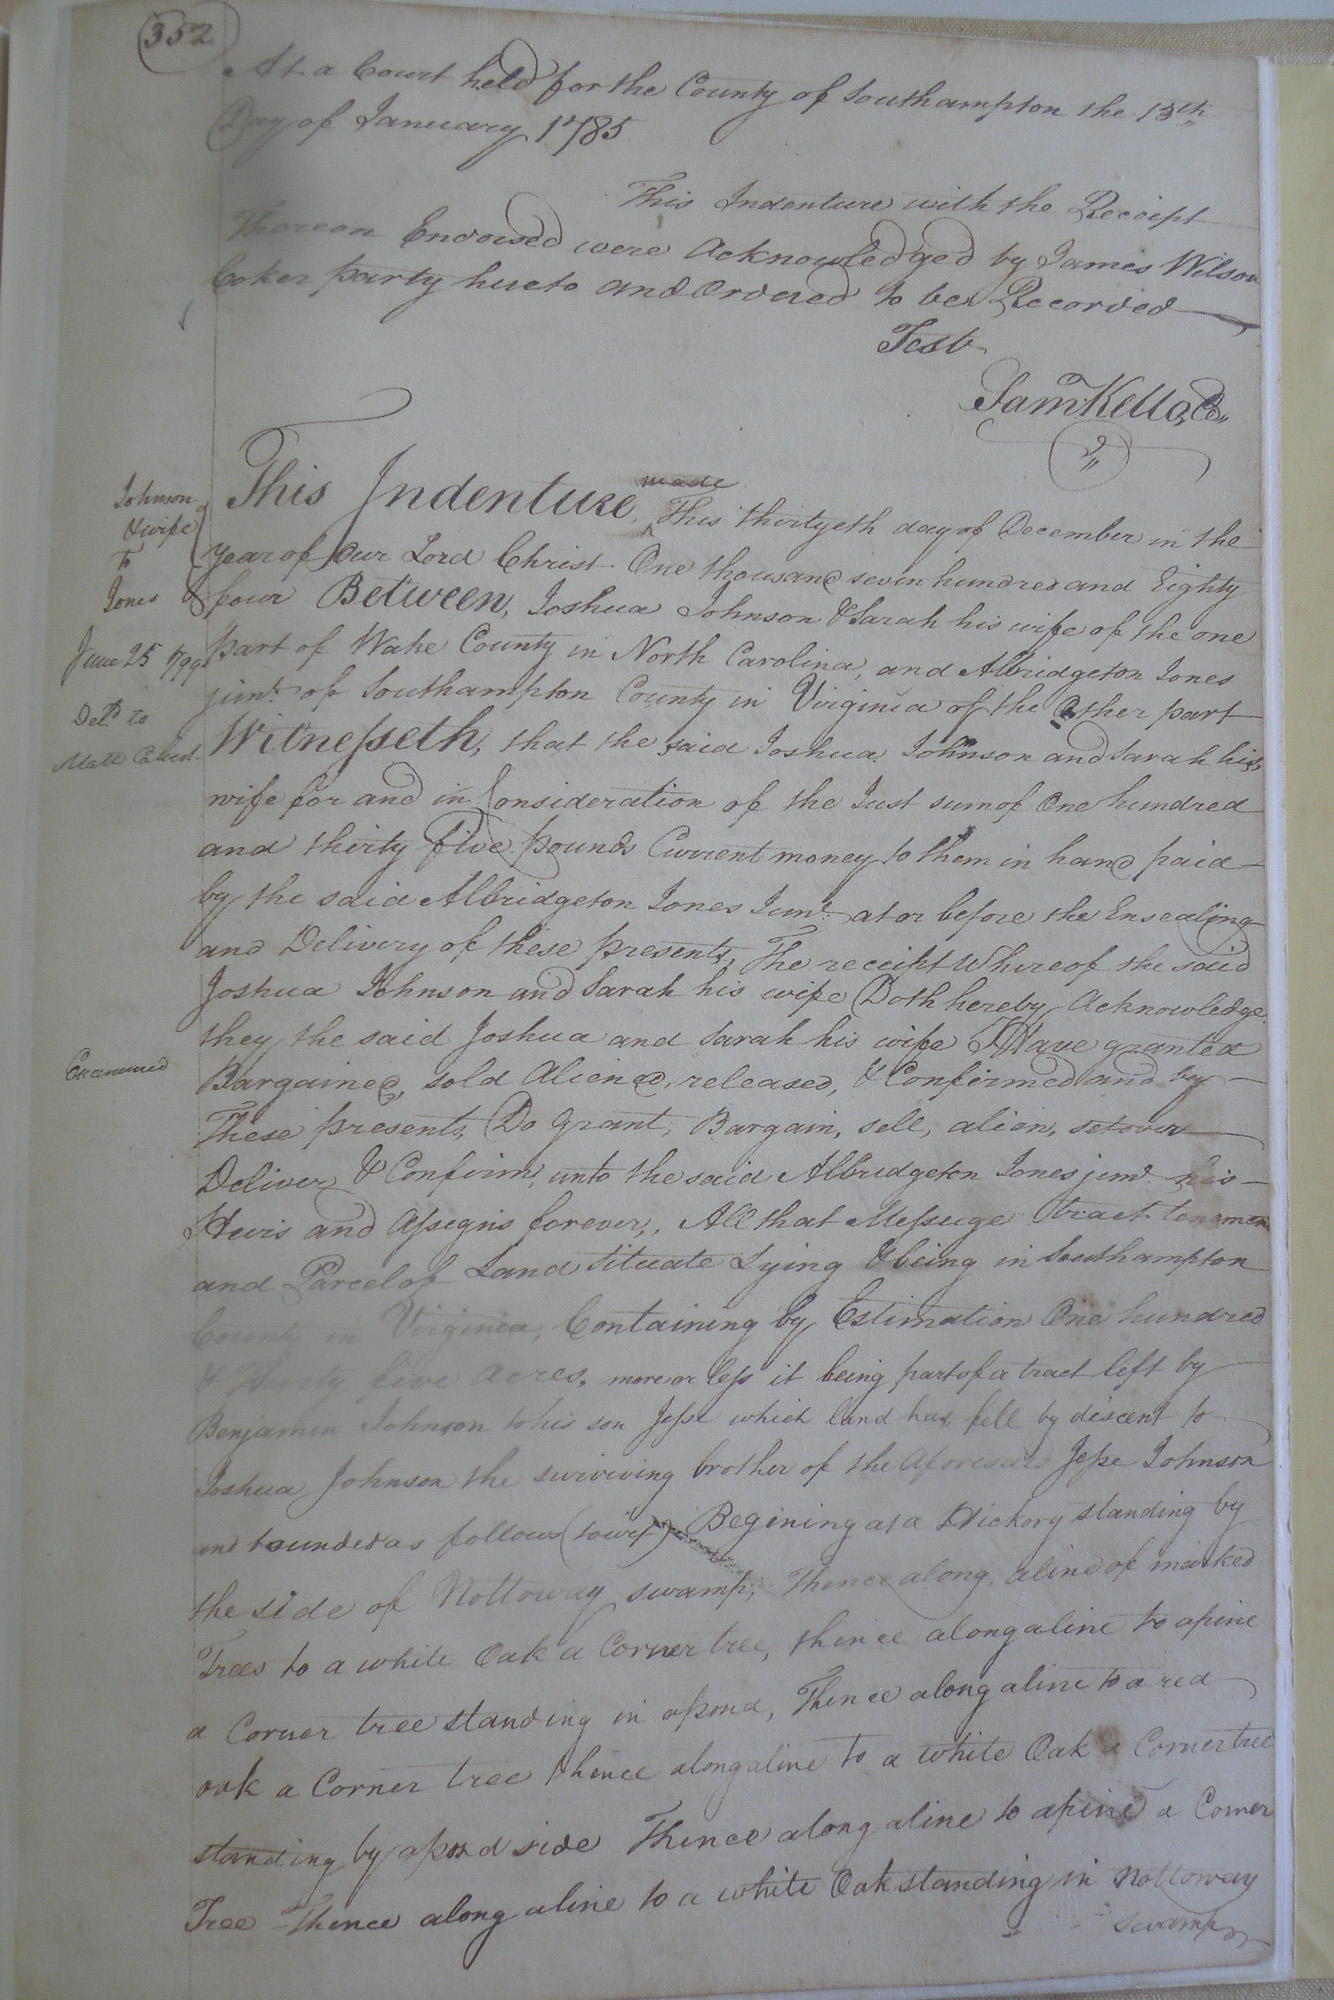 352
At a Court held for the County of Southampton the 13th
Day of January 1785
This Indenture with the Receipt
Thereon Endorsed were Acknowledged by James Wilson
Coker party hereto and Ordered to be Recorded
Test
Saml Kello, Cs
Johnson
& wife
To
Jones
June 25 1799
Deld to
Examined
This Indenture, made This thirtyeth day of December in the
year of our Lord Christ. One thousand seven hundred and Eighty
four Between, Joshua Johnson & Sarah his wife of the one
part of Wake County in North Carolina, and Albridgeton Jones
junr. of Southampton County in Virginia of the Other part
Witnesseth, that the said Joshua Johnson and Sarah his
wife for and in Consideration of the Just sum of One hundred
and thirty five pounds Current money to them in hand paid
by the said Albridgeton Jones Junr. at or before the Ensealing
and Delivery of these presents, The receipt Whereof the said
Joshua Johnson and Sarah his wife Doth hereby Acknowledge
they the said Joshua and Sarah his wife Have granted
Bargained, sold Aliened, released, & Confirmed and by
These presents, Do Grant, Bargain, sell, alien, setover
Deliver & Confirm, unto the said Albridgeton Jones junr. his
Heirs and Assegns forever, All that Messuge tract tenemen
and Parcel of Land Situate Lying & being in Southampton
County in Virginia, Containing by Estimation One hundred
& five acres, more or less it being part of a tract left by
Benjamin Johnson to his son Jesse which land has fell by discent to
Joshua Johnson the surviving brother of the Aforesaid Jesse Johnson
and bounded as follows (towit) Begining at a Hickory standing by
the side of Nottoway swamp, Thence along a line of marked
Trees to a white Oak a Corner tree, thence along a line to a pine
a Corner tree standing in a pond, Thence along a line to a red
oak a Corner tree thence along a line to a white Oak a Corner tree
standing by a pond side Thence along a line to a pine a Corner
Tree Thence along a line to a white Oak standing in Nottoway
swamp